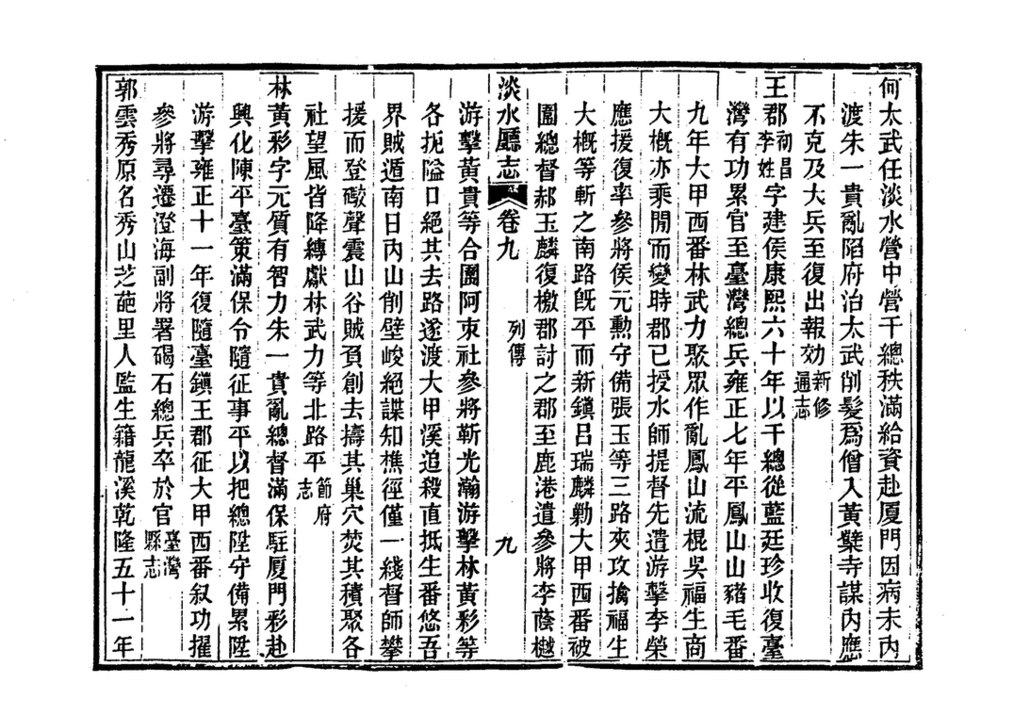 何太武任淡水營中營千總秩滿給資赴厦門因病未內
渡朱一貴亂陷府治太武削髮爲僧入黃檗寺謀內應
不克及大兵至復出報効新修通志
王郡初昌李姓字建侯康熙六十年以千總從藍廷珍收復臺
灣有功累官至臺灣總兵雍正七年平鳳山山豬毛番
九年大甲西番林武力聚眾作亂鳳山流棍吳福生商
大槪亦乘閒而變時郡已授水師提督先遣游擊李榮
應援復率參將侯元勳守備張玉等三路夾攻擒福生
大槪等斬之南路旣平而新鎮呂瑞麟勦大甲西番被
圍總督郝玉麟復檄郡討之郡至鹿港遣參將李蔭樾
淡水廳志 卷九 列傳 九
游擊黃貴等合圍阿束社參將靳光瀚游擊林黃彩等
各扼隘口絕其去路遂渡大甲溪追殺直抵生番悠吾
界賊遁南日內山削壁峻絕諜知樵徑僅一綫督師攀
援而登礮聲震山谷賊負創去擣其巢穴焚其積聚各
社望風皆降縛獻林武力等北路平節府志
林黃彩字元質有智力朱一貴亂總督滿保駐厦門彩赴
興化陳平臺策滿保令隨征事平以把總陞守備累陞
游擊雍正十一年復隨臺鎮王郡征大甲西番叙功擢
參將尋遷澄海副將署碣石總兵卒於官臺灣縣志
郭雲秀原名秀山芝葩里人監生籍龍溪乾隆五十一年